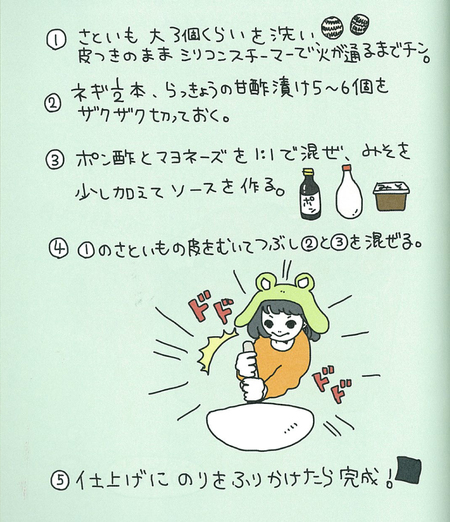 ① さといも 大3個くらいを洗い
皮つきのまま シリコンスチーマーで火が通るまでチン。
② ネギ1/2本、らっきょうの甘酢漬け5〜6個を
ザクザク切っておく。
③ ポン酢とマヨネーズを1:1で混ぜ、みそを
少し加えて ソースを作る。
ポン
④ ①のさといもの皮をむいてつぶし②と③を混ぜる。
ドドド
ドド
⑤ 仕上げに のりをふりかけたら 完成!